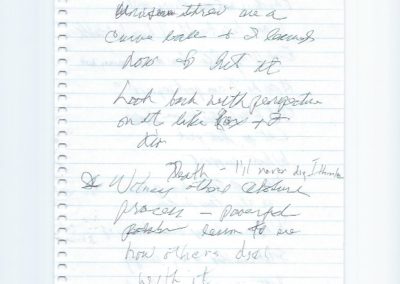 threw me a
curve ball & I learned
how to hit it
Look back with perspective
on it like
Death - I'll never die, I think
Witness others
process - powerful
learn to see
how others deal
with it